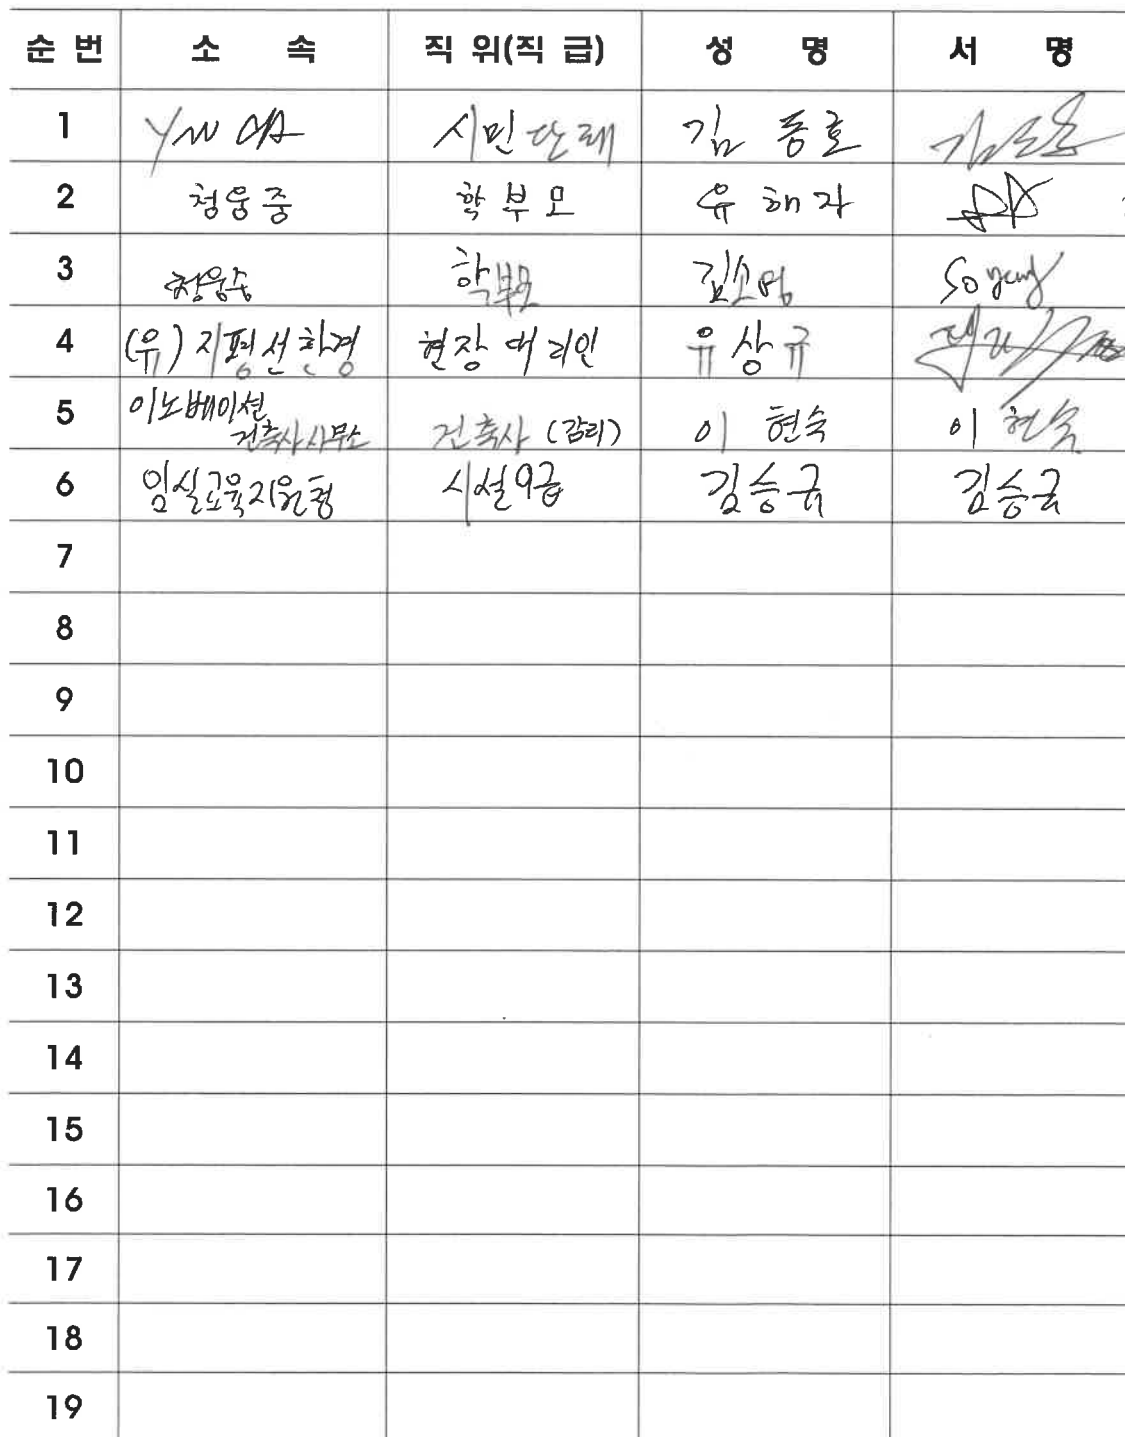 순번 소속 직위(직급) 성명 서명
1 YMCA 시민단체 김동호
2 청웅중 학부모 유해자
3 청웅중 학부모 김소영 So young
4 (유)지평선환경 현장대리인 유상규
5 이노베이션 건축사사무소 건축사 (감리) 이현숙 이현숙
6 임실교육지원청 시설9급 김승규 김승규
7
8
9
10
11
12
13
14
15
16
17
18
19